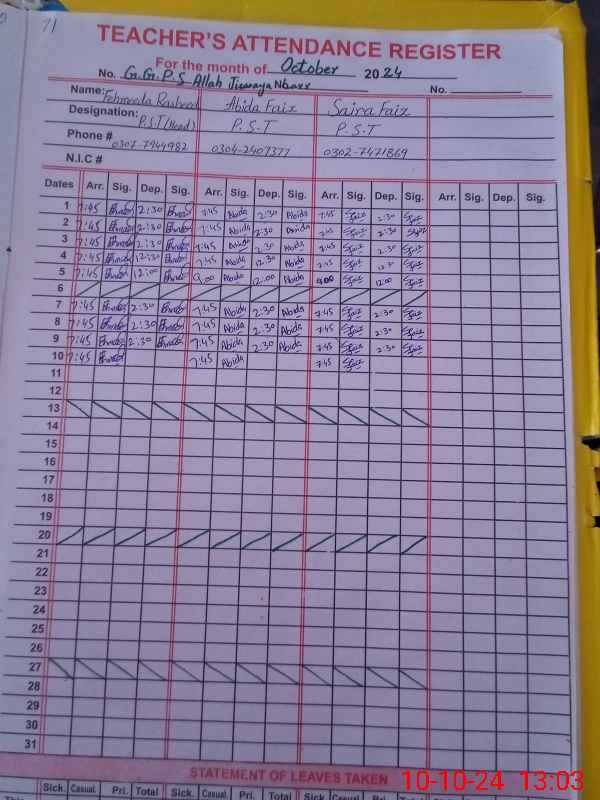 71
TEACHER'S ATTENDANCE REGISTER
For the month of October 2024
No. G.G.P.S Allah Jiwaya Nbarr No.
Name: Fehmeeda Rasheed Abida Faiz Saira Faiz
Designation: P.S.T (Head) P.S.T P.S.T
Phone # 0307-7944982 0304-2407377 0302-7471869
N.I.C #
Dates Arr. Sig. Dep. Sig. Arr. Sig. Dep. Sig. Arr. Sig. Dep. Sig. Arr. Sig. Dep. Sig.
1 7:45 2:30 7:45 Abida 2:30 Abida 7:45 Sfaiz 2:30 Sfaiz
2 7:45 2:30 7:45 Abida 2:30 Abida 7:45 Sfaiz 2:30 Sfaiz
3 7:45 2:30 7:45 Abida 2:30 Abida 7:45 Sfaiz 2:30 Sfaiz
4 7:45 12:30 7:45 Abida 12:30 Abida 7:45 Sfaiz 12:30 Sfaiz
5 7:45 12:00 9:00 Abida 12:00 Abida 9:00 Sfaiz 12:00 Sfaiz
6
7 7:45 2:30 7:45 Abida 2:30 Abida 7:45 Sfaiz 2:30 Sfaiz
8 7:45 2:30 7:45 Abida 2:30 Abida 7:45 Sfaiz 2:30 Sfaiz
9 7:45 2:30 7:45 Abida 2:30 Abida 7:45 Sfaiz 2:30 Sfaiz
10 7:45 7:45 Abida 7:45 Sfaiz
11
12
13
14
15
16
17
18
19
20
21
22
23
24
25
26
27
28
29
30
31
STATEMENT OF LEAVES TAKEN
Sick. Casual. Pri. Total Sick. Casual. Pri. Total Sick. Casual. Pri. Total Sick. Casual. Pri. Total
10-10-24 13:03